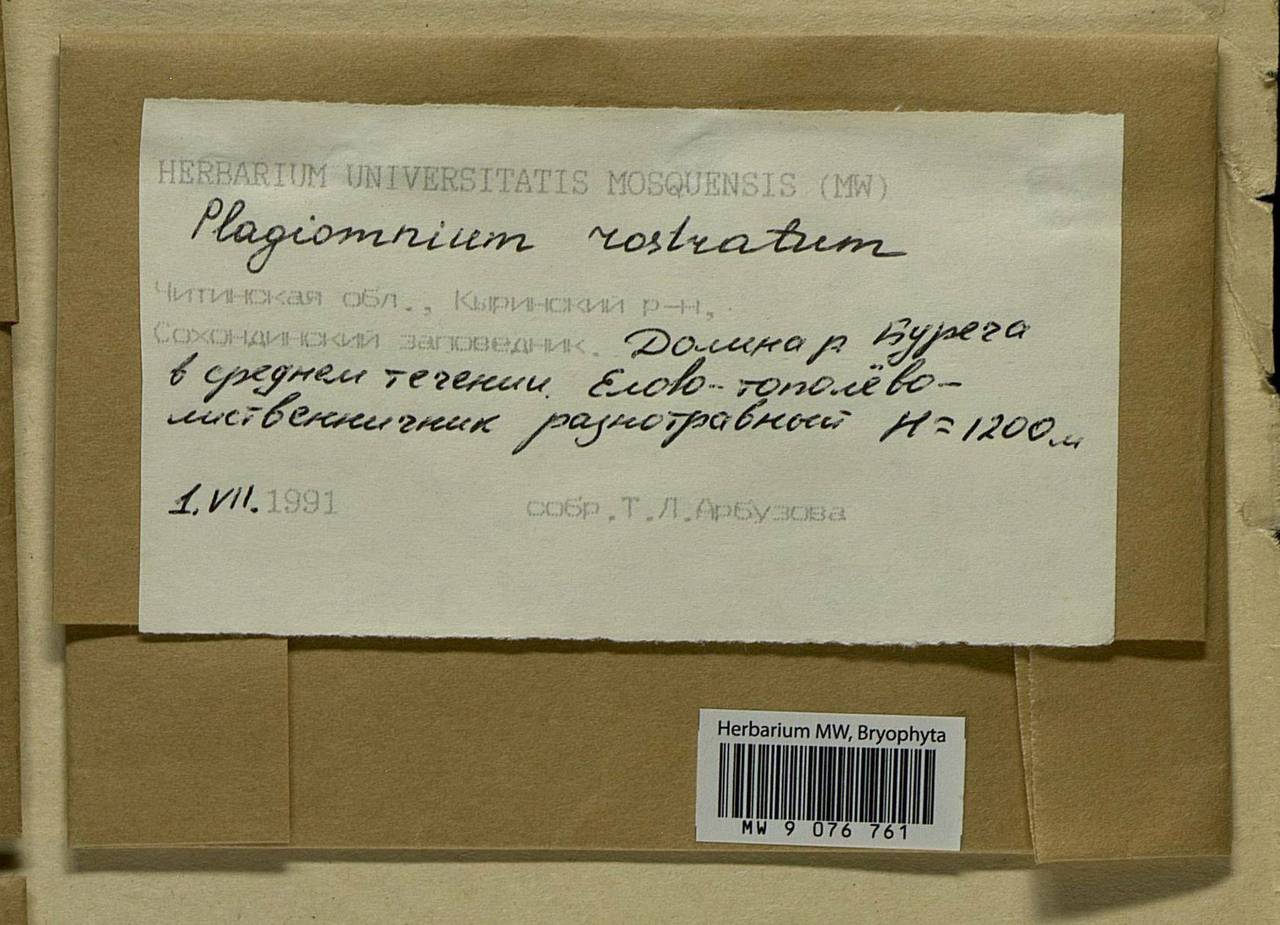 HERBARIUM UNIVERSITATIS MOSQUENSIS (MW)
Plagiomnium rostratum
Читинская обл., Кыринский р-н,
Сохондинский заповедник. Долина р Буреча
в среднем течении. Елово-тополёво-
лиственничник разнотравный H=1200м
1.VII.1991 собр.Т.Л.Арбузова
Herbarium MW, Bryophyta
MW 9 076 761